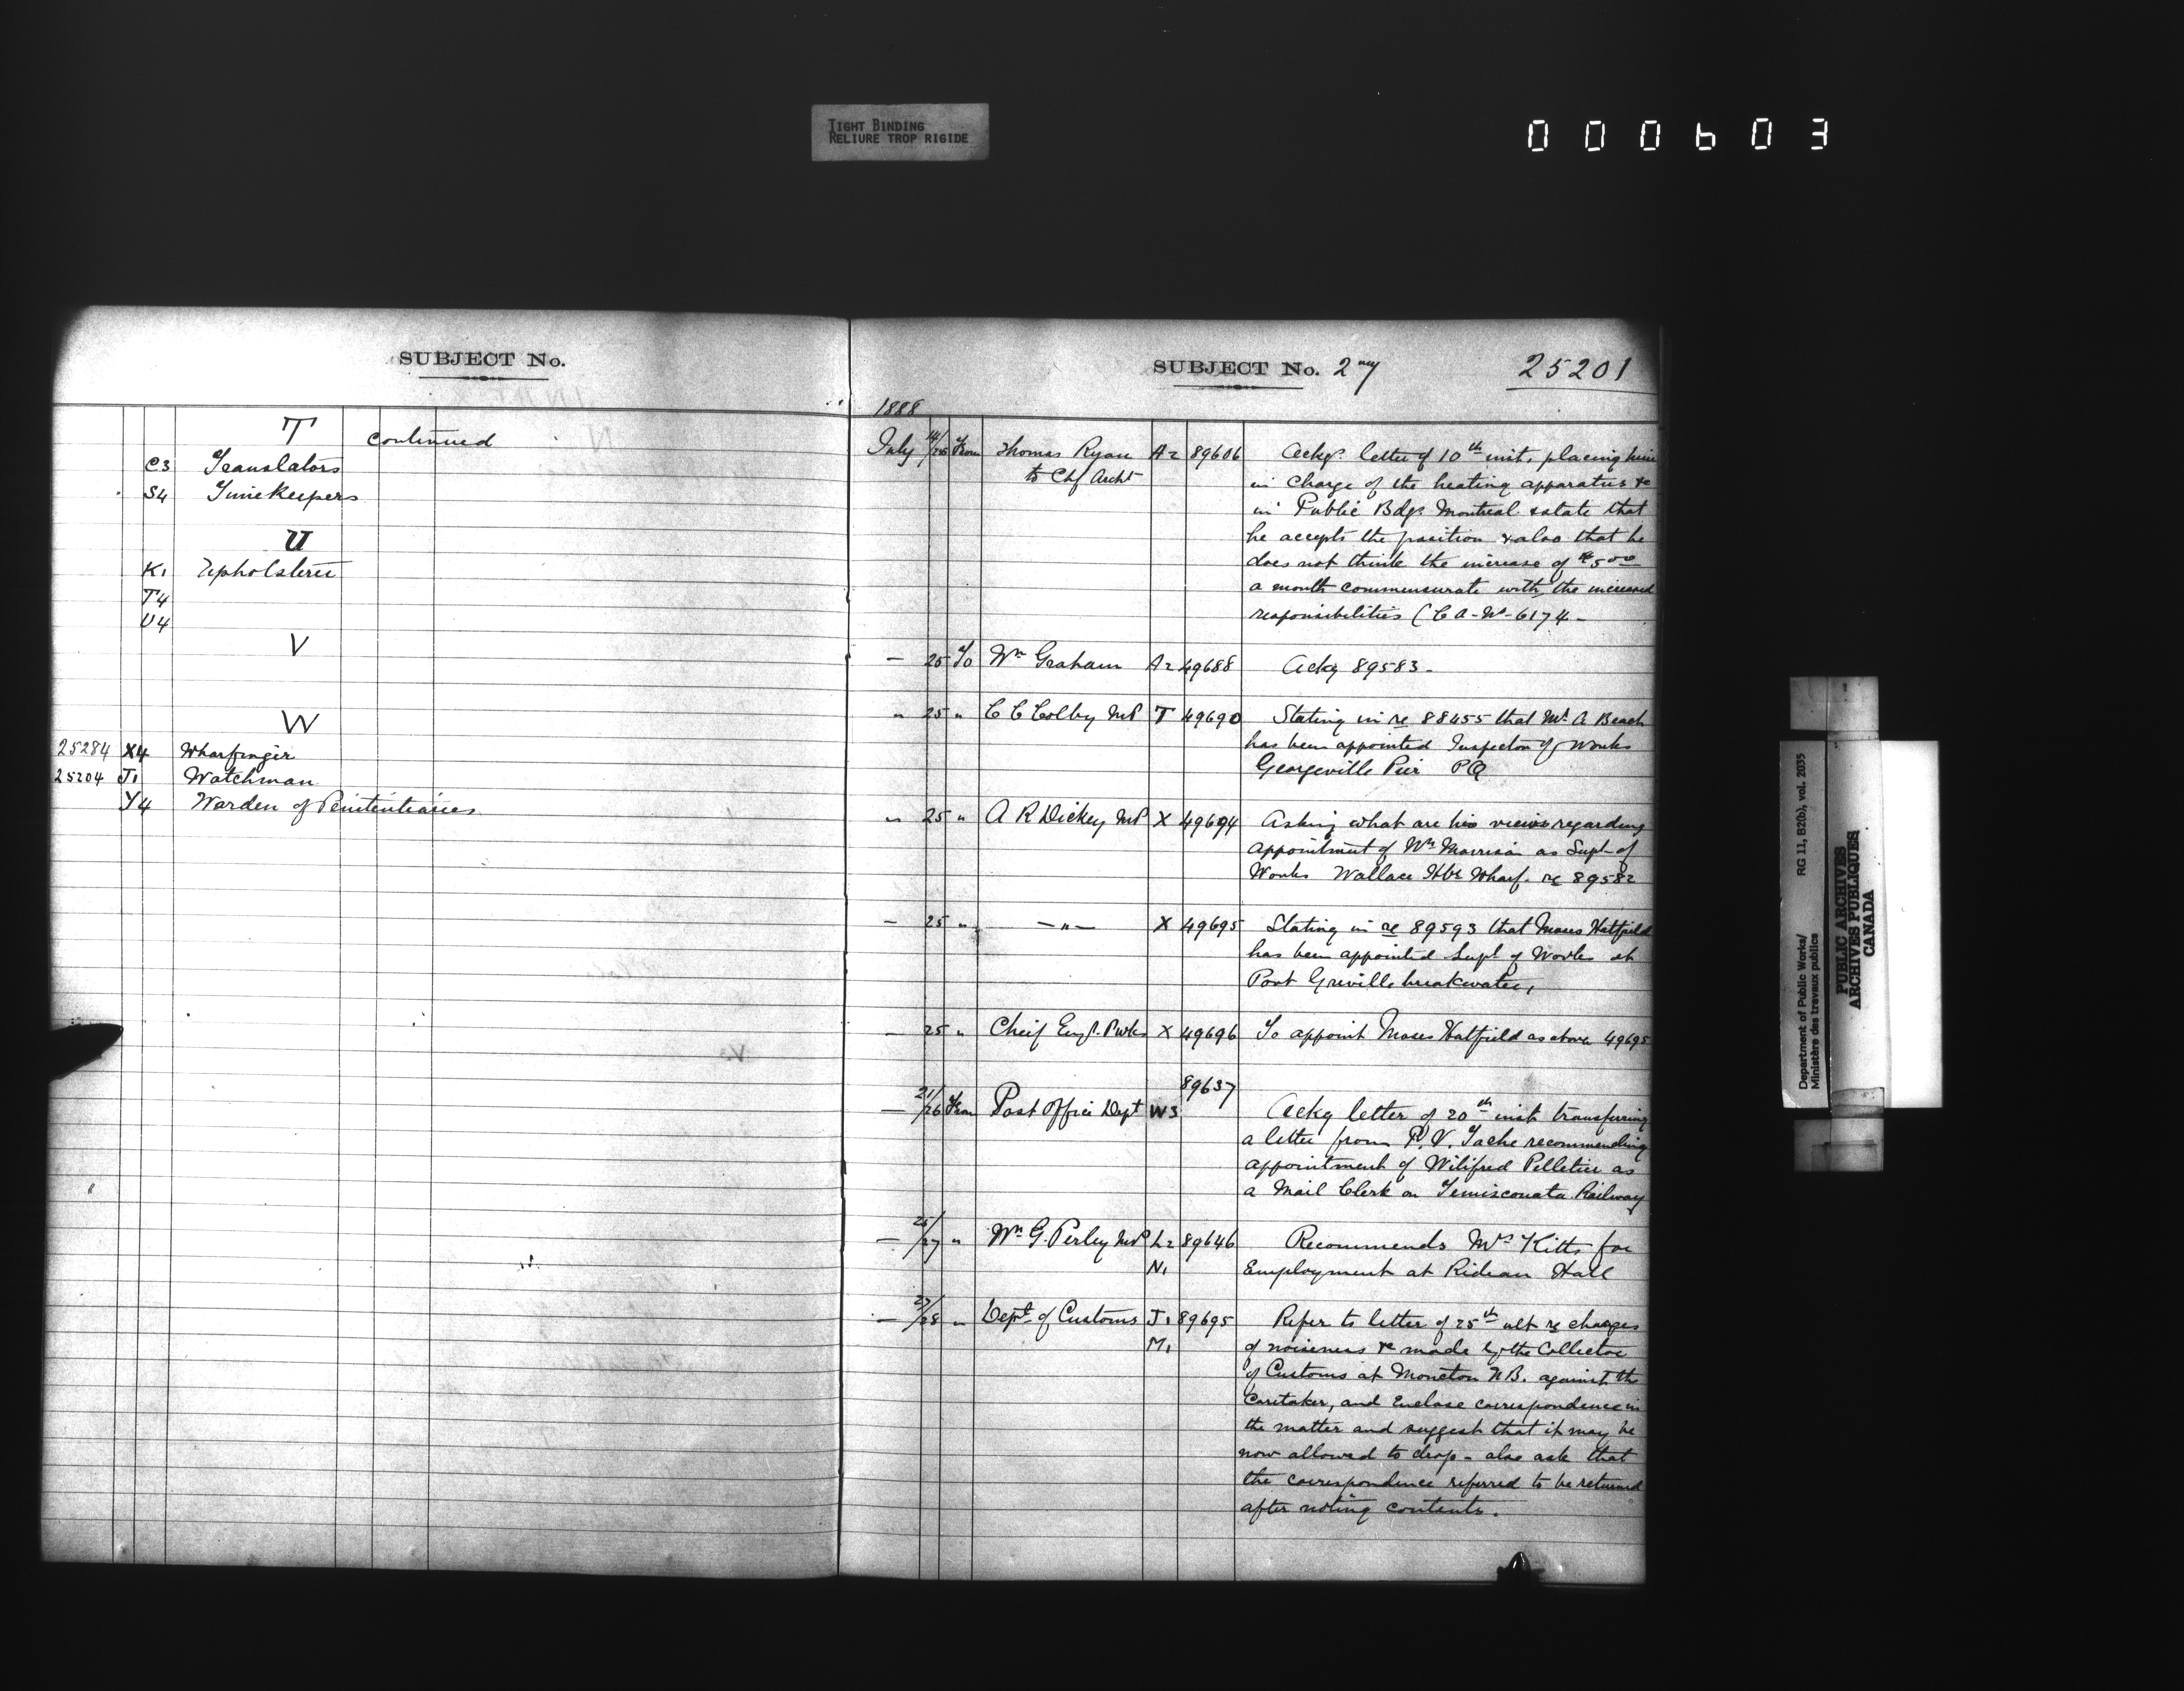 TIGHT BINDING
RELIURE TROP RIGIDE
000603
SUBJECT No.
T continued
C3 Translators
S4 Timekeepers
U
K1 Upholsterer
T4
U4
V
W
25284 X4 Wharfinger
25204 J1 Watchman
Y4 Warden of Penitentiaries
SUBJECT No. 25201
1888
July 14/26 From Thomas Ryan A2 89606 Ackg. letter of 10th inst, placing him
to Chf Archt in charge of the heating apparatus &c
in Public Bdgs Montreal & state that
he accepts the position & also that he
does not think the increase of $5 00
a month commensurate with the increased
responsibilities (C A - No - 6174 -
— 25 To Wm Graham A2 49688 Ackg 89583 -
" 25 " C C Colby MP T 49690 Stating in re 88455 that Mr A Beach
has been appointed Inspector of Works
Georgeville Pier PQ
" 25 " A R Dickey MP X 49694 Asking what are his views regarding
appointment of Wm Morrison as Supt of
Works Wallace Hbr Wharf. re 89582
— 25 " — " — X 49695 Stating in re 89593 that Moses Hatfield
has been appointed Supt of Works at
Port Greville breakwater,
— 25 " Cheif Engr. Pwks X 49696 To appoint Moses Hatfield as above 49695
89637
— 21/26 From Post Office Dept W3 Ackg letter of 20th inst transferring
a letter from P. V. Tache recommending
appointment of Wilifred Pelletier as
a Mail Clerk on Temisconata Railway
— 25/27 " Wm G. Perley MP L2 89646 Recommends Mrs Kitts for
N1 Employment at Rideau Hall
— 27/28 " Dept of Customs J1 89695 Refer to letter of 25th ult re charges
M1 of noiseness &c made by the Collector
of Customs at Moncton N.B. against the
Caretaker, and Enclose correspondence in
the matter and suggest that it may be
now allowed to drop - also ask that
the correspondence referred to be returned
after noting contents.
Department of Public Works/
Ministère des travaux publics
RG 11, B2(b), vol. 2035
PUBLIC ARCHIVES
ARCHIVES PUBLIQUES
CANADA